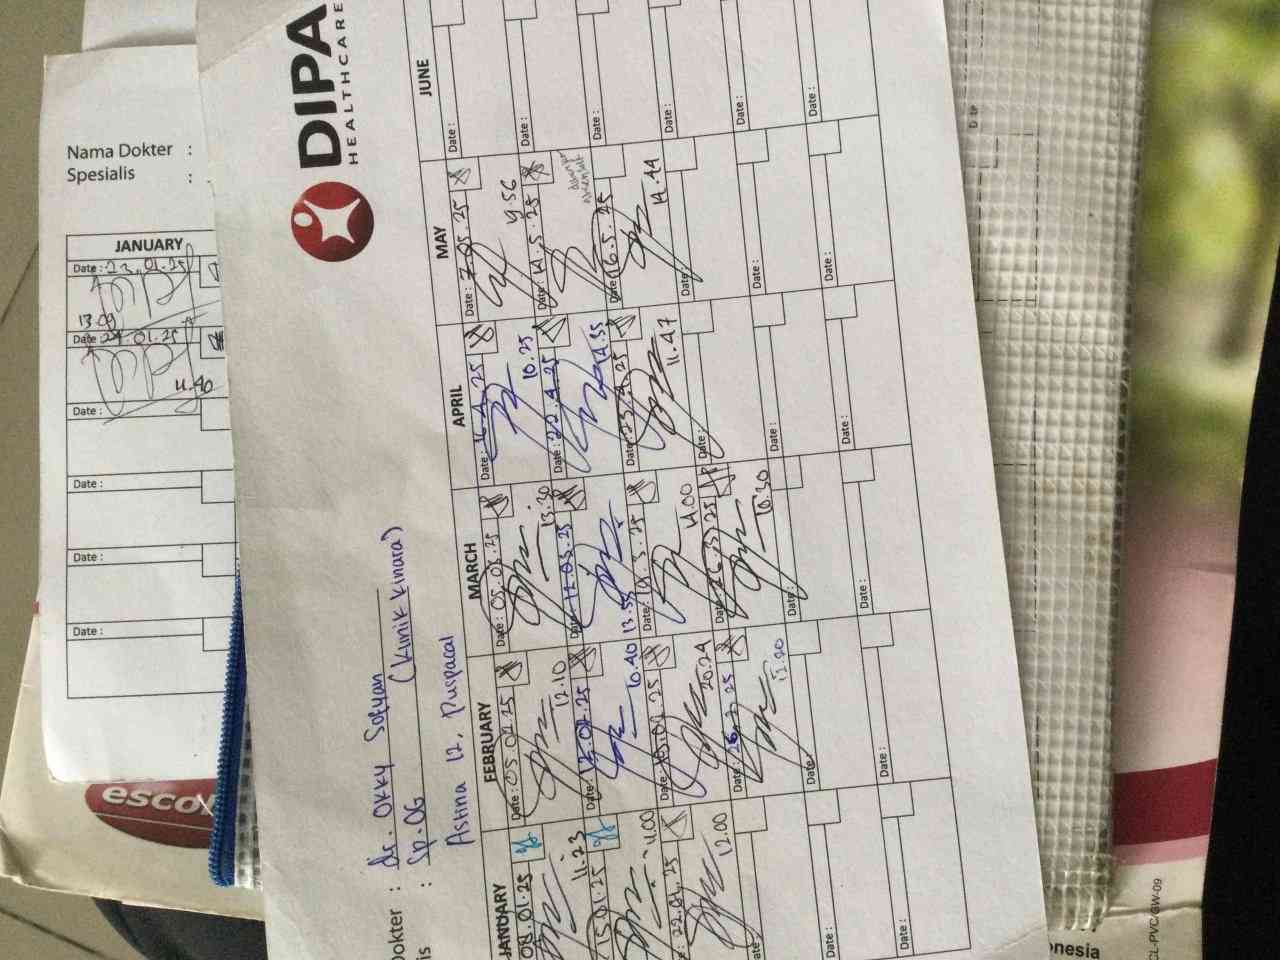 DIPA
HEALTHCARE
okter : dr. Okky Sofyan
is : Sp.OG (Klinik Kinara)
Astina 12, Puspacal
JANUARY
08.01.25
11.23
15.01.25
11.00
22.01.25
12.00
Date :
Date :
FEBRUARY
Date : 05.02.25
12.10
Date : 12.02.25
10.40
Date :
20.24
Date : 26.2.25
12.20
Date :
Date :
MARCH
Date : 05.03.25
13.30
Date : 12.03.25
13.55
Date : 19.3.25
11.00
Date : 26.3.25
10.30
Date :
Date :
APRIL
Date : 16.4.25
10.25
Date : 22.4.25
14.55
Date : 23.4.25
11.47
Date :
Date :
Date :
MAY
Date : 7.05.25
Date : 14.5.25
Date : 16.5.25
14.44
Date :
Date :
Date :
JUNE
Date :
Date :
Date :
Date :
Date :
Date :
Nama Dokter :
Spesialis :
JANUARY
Date : 23.01.25
13.09
Date : 24.01.25
11.40
Date :
Date :
Date :
Date :
esco
nesia
CL-PVC/GW-09